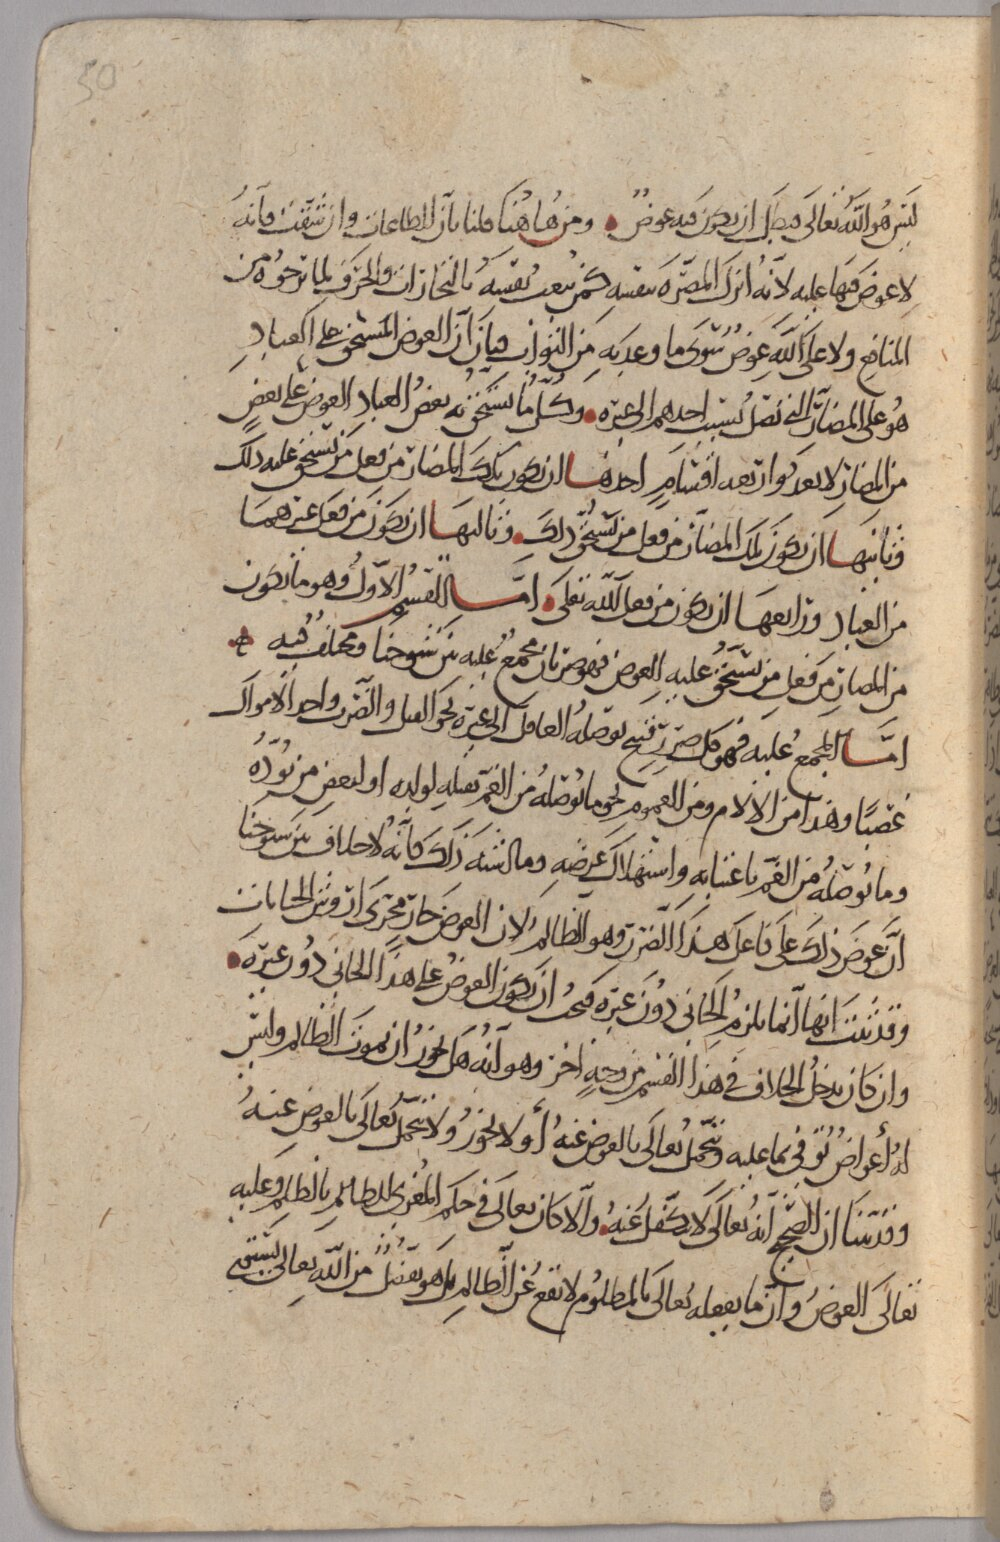 50
ليس هو الله تعالى فبطل ان يكون فيه عوض ومن هاهنا قلنا بان الطاعات وان شقت فانه
لا عوض فيها عليه لانه انزل المضرة بنفسه كمن يتعب نفسه بالتجارات والحرف لما يرجوه من
المنافع ولا على الله عوض سوى ما وعد به من الثواب فبان ان العوض المستحق على العباد
هو على المضار التي تصل بسبب احدهم الى غيره وكل ما يستحق به بعض العباد العوض على بعض
من المضار لا يعدو اربعه اقسام احدها ان يكون تلك المضار من فعل من يستحق عليه ذلك
وثانيها ان يكون تلك المضار من فعل من يستحق ذلك وثالثها ان يكون من فعل غيرهما
من العباد ورابعها ان يكون من فعل الله تعلى اما القسم الاول وهو ما يكون
من المضار من فعل من يستحق عليه العوض فهو ضربان مجمع عليه بين شيوخنا ومختلف فيه
اما المجمع عليه فهو كل ضرر قبيح يوصله العاقل الى غيره نحو القتل والضرب واخذ الاموال
غصبا وهذا من الالام ومن الغموم نحو ما يوصله من الغم بقتله لولده او لبعض من يوده
وما يوصله من الغم باغتيابه واستهلاك عرضه وما اشبه ذلك فانه لا خلاف بين شيوخنا
ان عوض ذلك على فاعل هذا الضرر وهو الظالم لان العوض جار مجرى اروش الجنايات
وقد ثبت انها انما يلزم الجاني دون غيره فيجب ان يكون العوض على هذا الجاني دون غيره
وان كان يدخل الخلاف في هذا القسم من وجه اخر وهو انه هل يجوز ان يموت الظالم وليس
له أعواض توفي بما عليه ويتحمل تعالى بالعوض عنه أو لا يجوز ولا يتحمل تعالى بالعوض عنه
وقد بينا ان الصحيح انه تعالى لا يتكفل عنه والا كان تعالى في حكم المغري للظالم بالظلم وعليه
تعالى العوض وان ما يفعله تعالى بالمظلوم لا يقع عن الظالم بل هو تفضل من الله تعالى